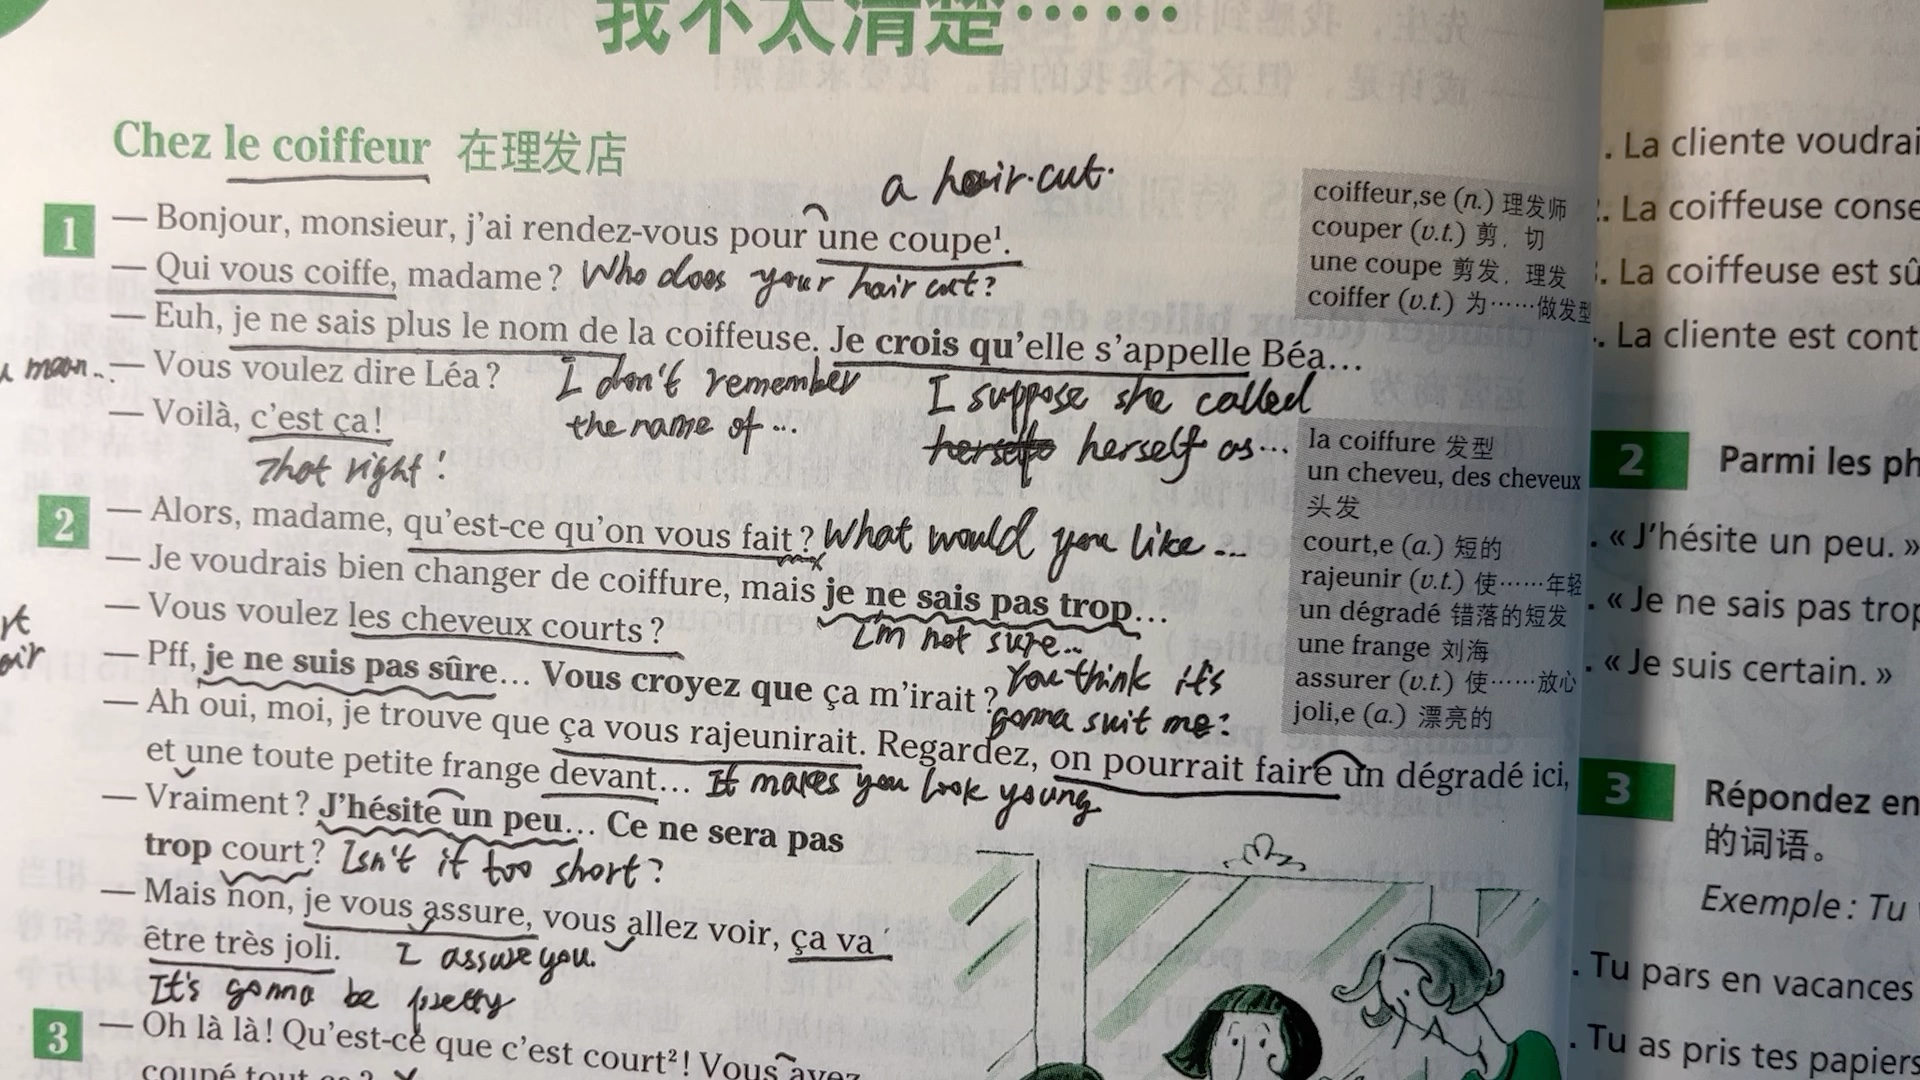 我不太清楚……
Chez le coiffeur 在理发店
a hair-cut.
1 — Bonjour, monsieur, j'ai rendez-vous pour une coupe¹.
— Qui vous coiffe, madame ? Who does your hair cut?
— Euh, je ne sais plus le nom de la coiffeuse. Je crois qu'elle s'appelle Béa…
— Vous voulez dire Léa ? I don't remember I suppose she called
— Voilà, c'est ça ! the name of ... herself as...
That right!
2 — Alors, madame, qu'est-ce qu'on vous fait ? What would you like ...
— Je voudrais bien changer de coiffure, mais je ne sais pas trop…
— Vous voulez les cheveux courts ? I'm not sure...
— Pff, je ne suis pas sûre… Vous croyez que ça m'irait ? You think it's
gonna suit me?
— Ah oui, moi, je trouve que ça vous rajeunirait. Regardez, on pourrait faire un dégradé ici,
et une toute petite frange devant… It makes you look young
— Vraiment ? J'hésite un peu… Ce ne sera pas
trop court ? Isn't it too short?
— Mais non, je vous assure, vous allez voir, ça va
être très joli. I assure you.
It's gonna be pretty
3 — Oh là là ! Qu'est-ce que c'est court² ! Vous avez
coupé tout
coiffeur,se (n.) 理发师
couper (v.t.) 剪，切
une coupe 剪发，理发
coiffer (v.t.) 为……做发型
la coiffure 发型
un cheveu, des cheveux
头发
court,e (a.) 短的
rajeunir (v.t.) 使……年轻
un dégradé 错落的短发
une frange 刘海
assurer (v.t.) 使……放心
joli,e (a.) 漂亮的
. La cliente voudrai
. La coiffeuse conse
. La coiffeuse est sû
. La cliente est cont
2 Parmi les ph
. « J'hésite un peu. »
. « Je ne sais pas trop
. « Je suis certain. »
3 Répondez en
的词语。
Exemple : Tu
. Tu pars en vacances
. Tu as pris tes papiers